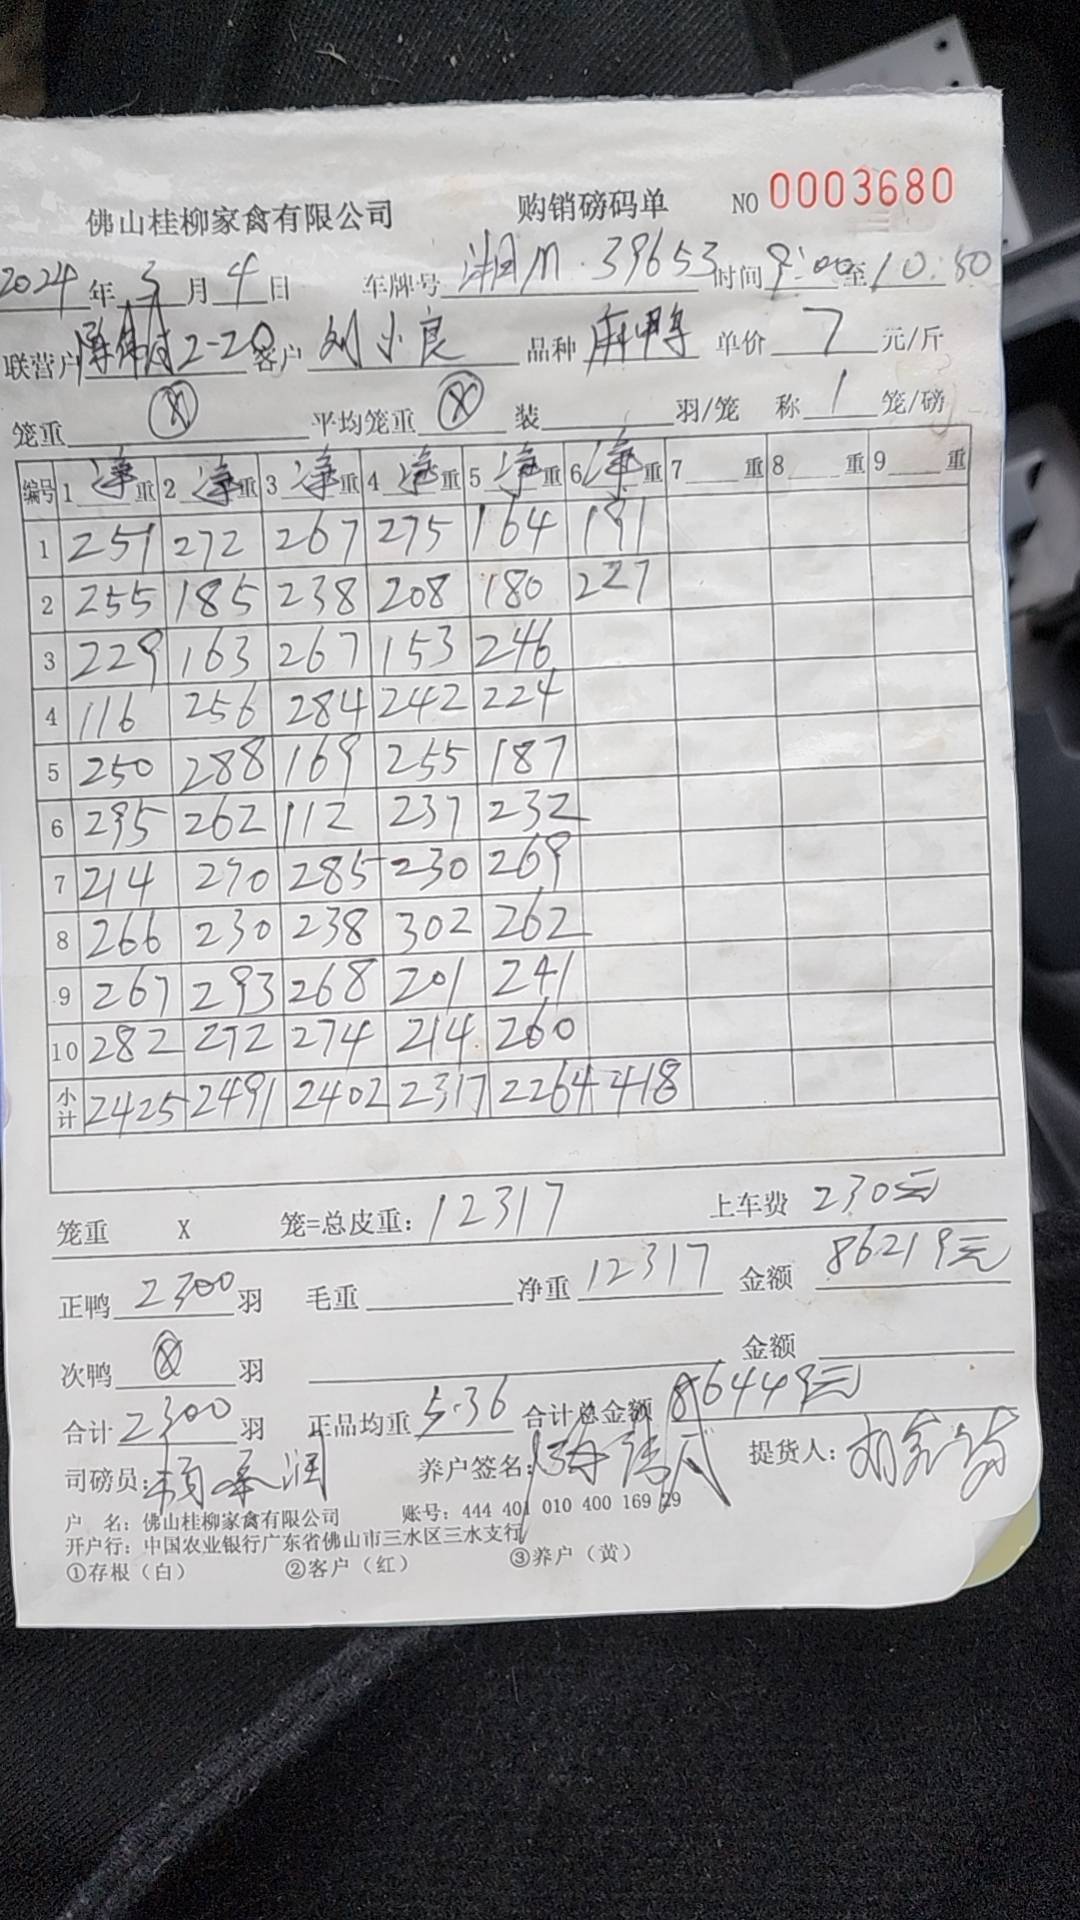 佛山桂柳家禽有限公司 购销磅码单 NO 0003680
2024年3月4日 车牌号 湘M·39653 时间 9:00至10:50
联营户 2-20 客户 刘小良 品种 麻鸭 单价 7 元/斤
笼重 ⊗ 平均笼重 ⊗ 装 羽/笼 称 1 笼/磅
编号 1 净重 2 净重 3 净重 4 净重 5 净重 6 净重 7 重 8 重 9 重
1 251 272 267 275 164 191
2 255 185 238 208 180 227
3 229 163 267 153 246
4 116 256 284 242 224
5 250 288 169 255 187
6 295 262 112 237 232
7 214 270 285 230 269
8 266 230 238 302 262
9 267 293 268 201 241
10 282 272 274 214 260
小计 2425 2491 2402 2317 2264 418
笼重 X 笼=总皮重: 12317 上车费 230元
正鸭 2300 羽 毛重 净重 12317 金额 86219元
次鸭 ⊗ 羽 金额
合计 2300 羽 正品均重 5.36 合计总金额 86449元
司磅员: 养户签名: 提货人:
户 名: 佛山桂柳家禽有限公司 账号: 444 401 010 400 169 29
开户行: 中国农业银行广东省佛山市三水区三水支行
①存根(白) ②客户(红) ③养户(黄)